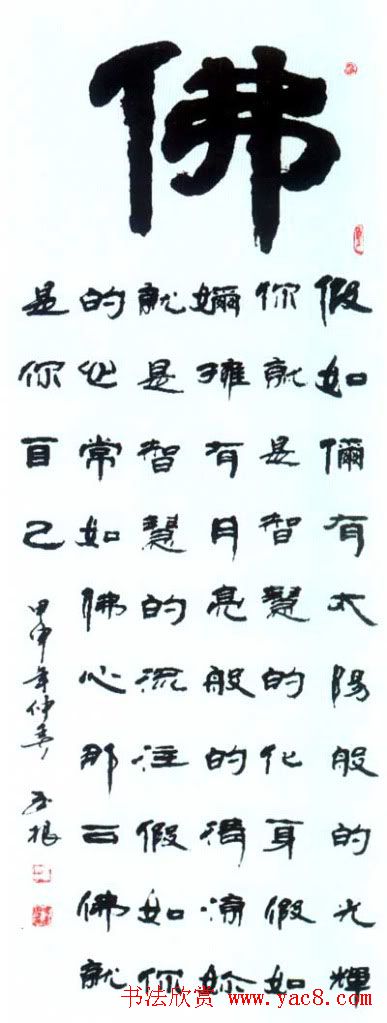 佛
假如儞有太陽般的光輝
你就是智慧的化身假如
嬭擁有月亮般的妳
就是智慧的流注假如你
的心常如佛心那佛就
是你自己
甲申年仲
根
书法欣赏 www.yac8.com